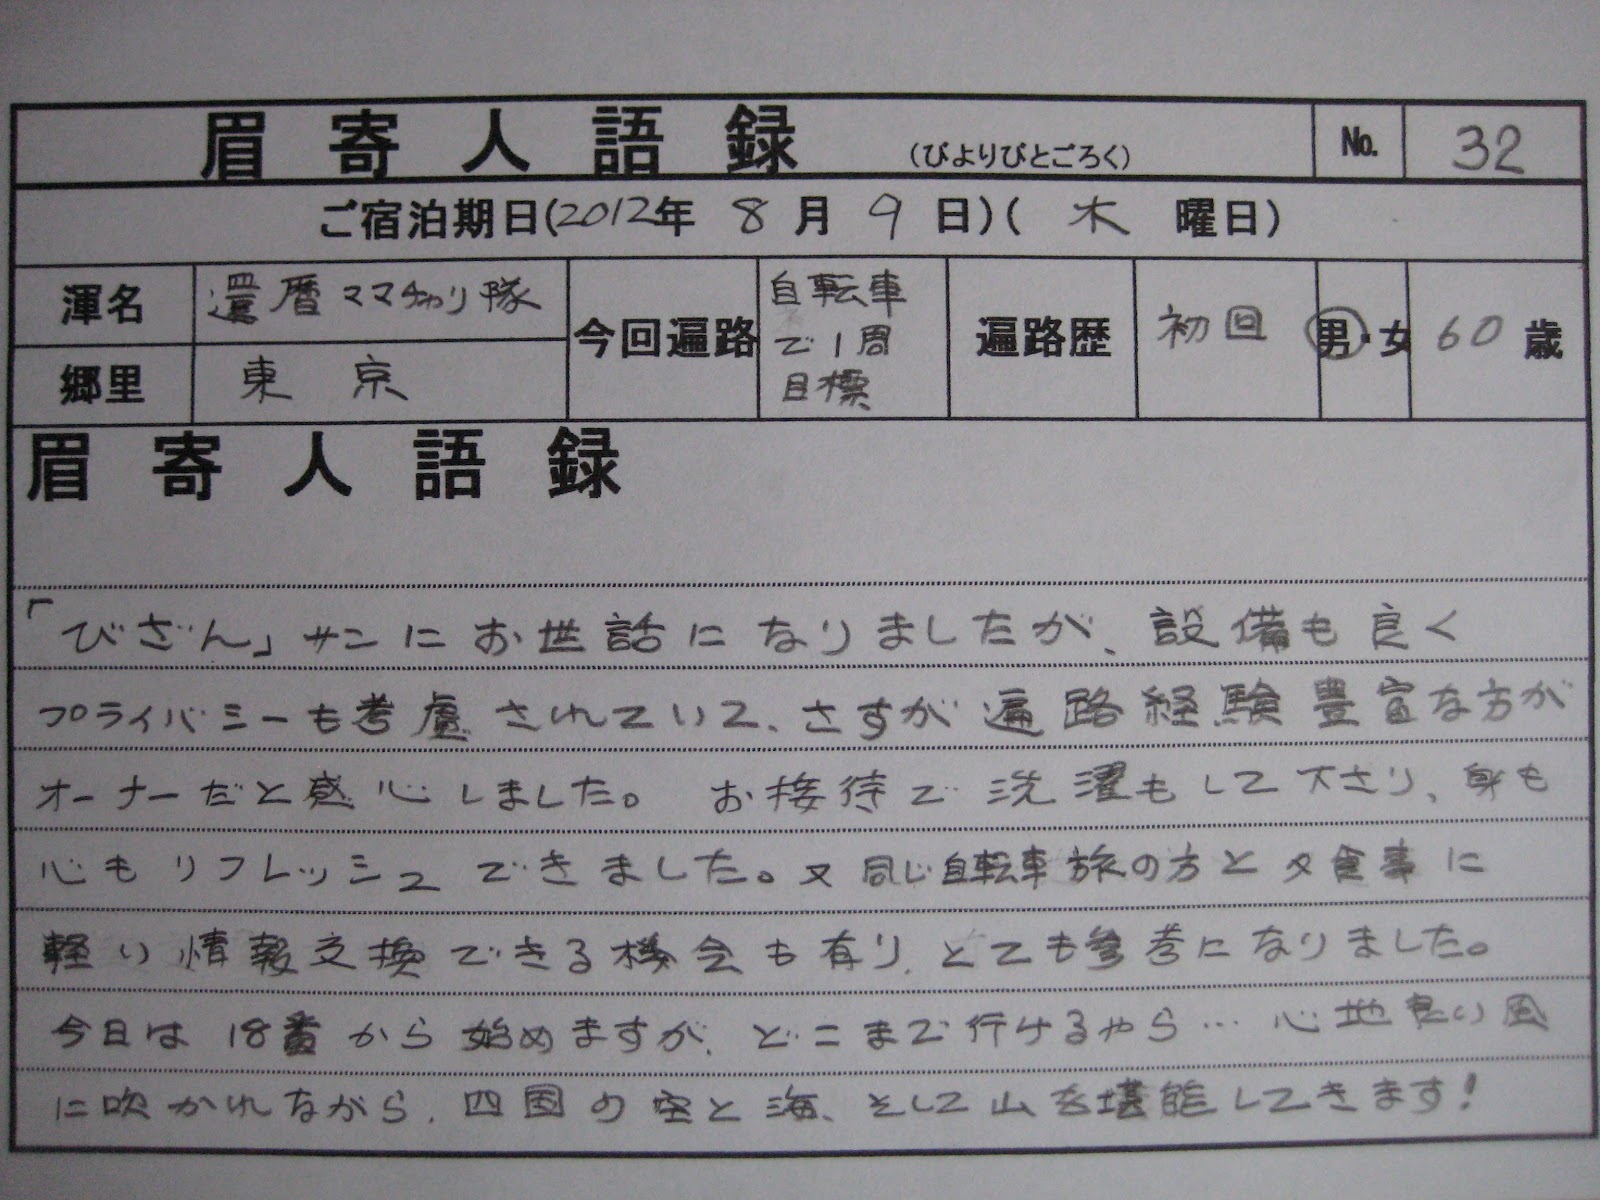 眉寄人語録 (びよりびとごろく) No. 32
ご宿泊期日(2012年 8月 9日)( 木 曜日)
渾名 還暦ママチャリ隊
郷里 東京
今回遍路 自転車
で1周
目標
遍路歴 初回 男・女 60歳
眉寄人語録
「びざん」サンにお世話になりましたが、設備も良く
プライバシーも考慮されていて、さすが遍路経験豊富な方が
オーナーだと感心しました。 お接待で洗濯もして下さり、身も
心もリフレッシュできました。又同じ自転車旅の方と夕食事に
軽い情報交換できる機会も有り、とても参考になりました。
今日は18番から始めますが、どこまで行けるやら… 心地良い風
に吹かれながら、四国の空と海、そして山を堪能してきます!